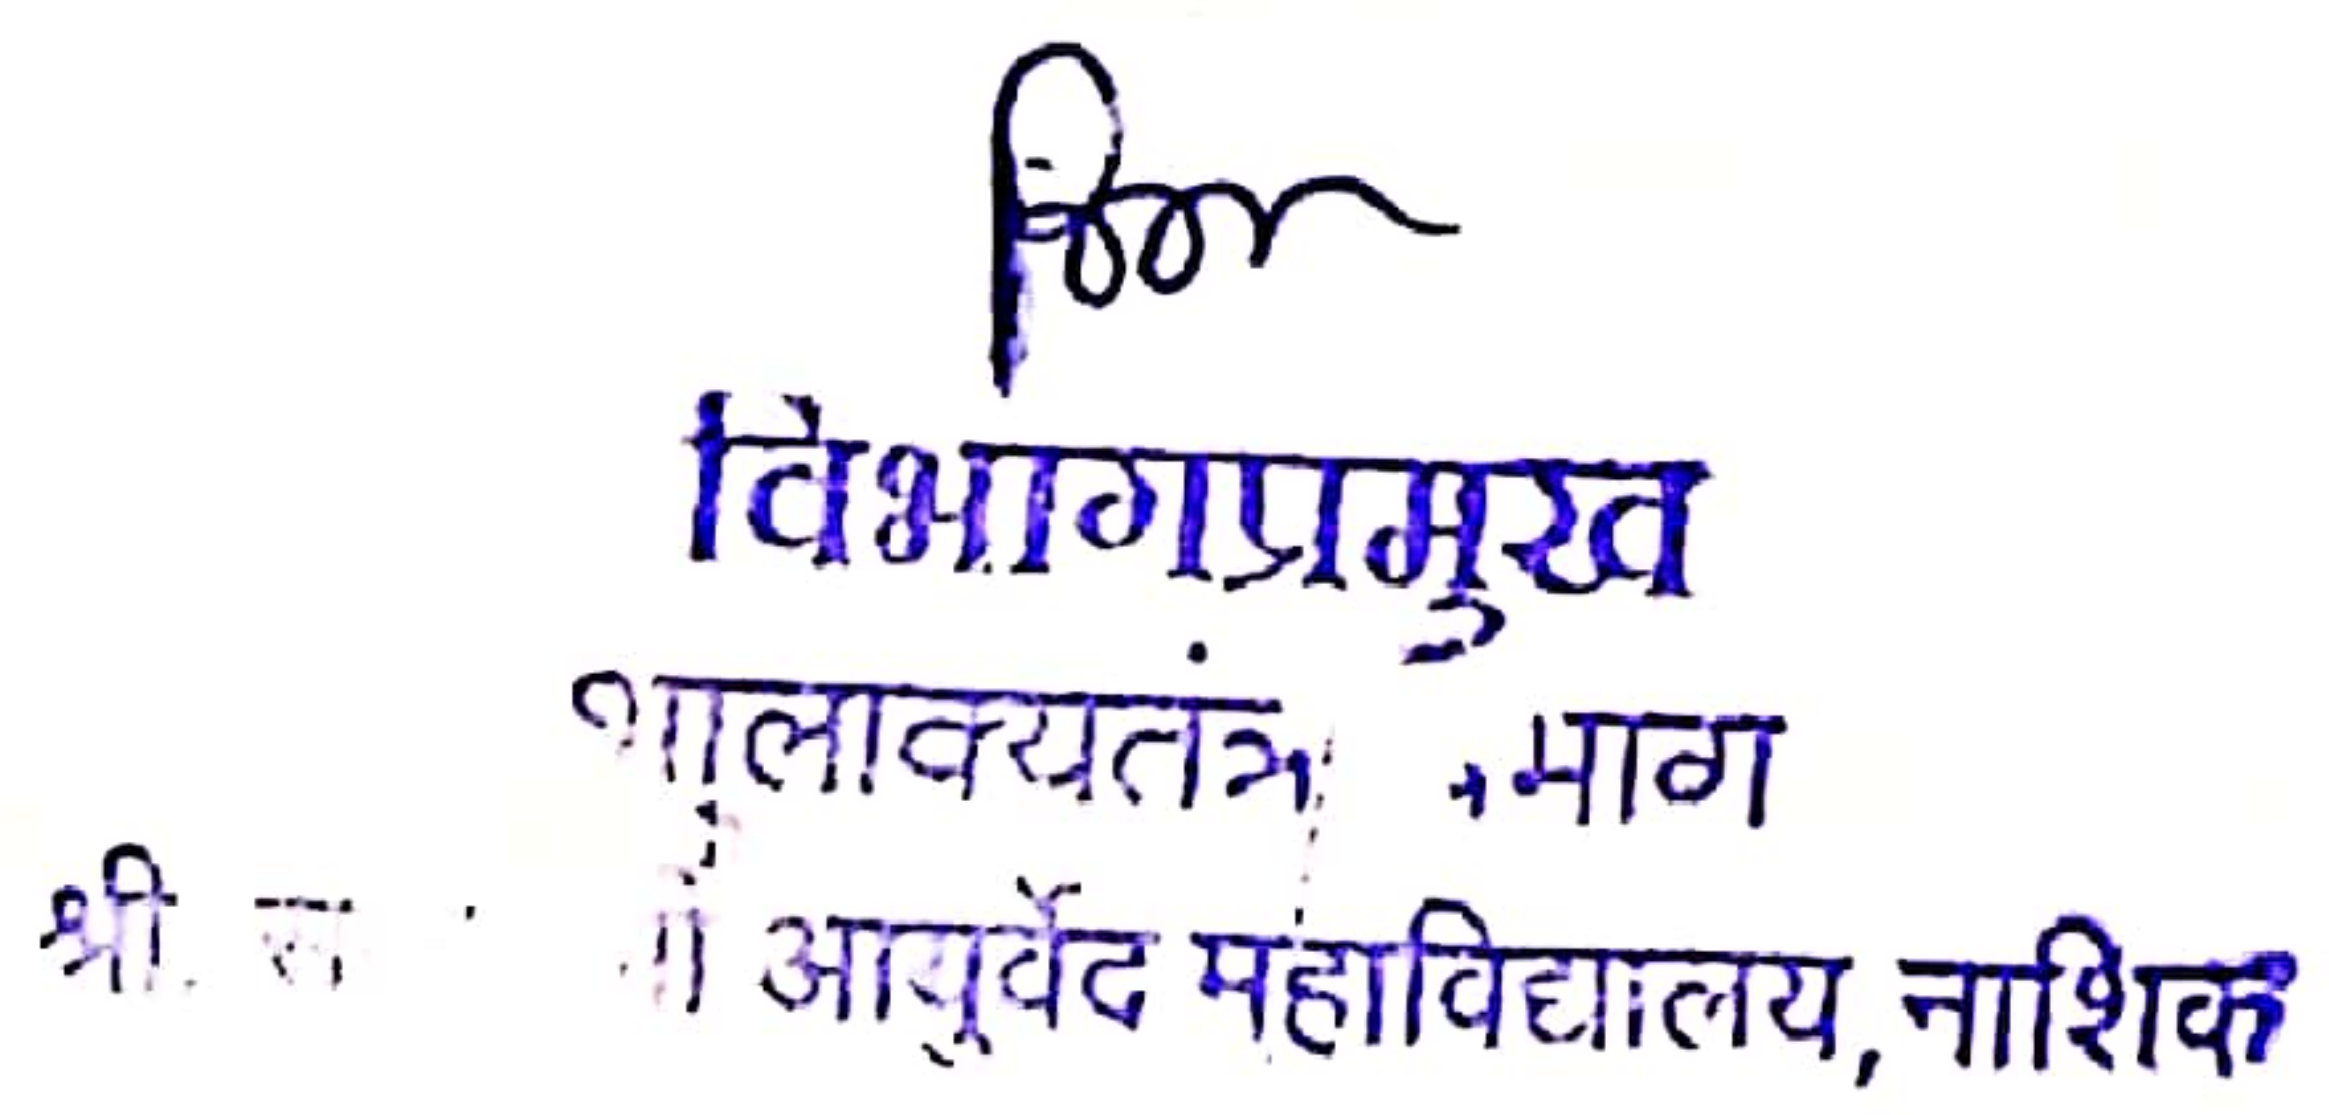 विभागप्रमुख
शालाक्यतंत्र
श्री. आयुर्वेद महाविद्यालय, नाशिक